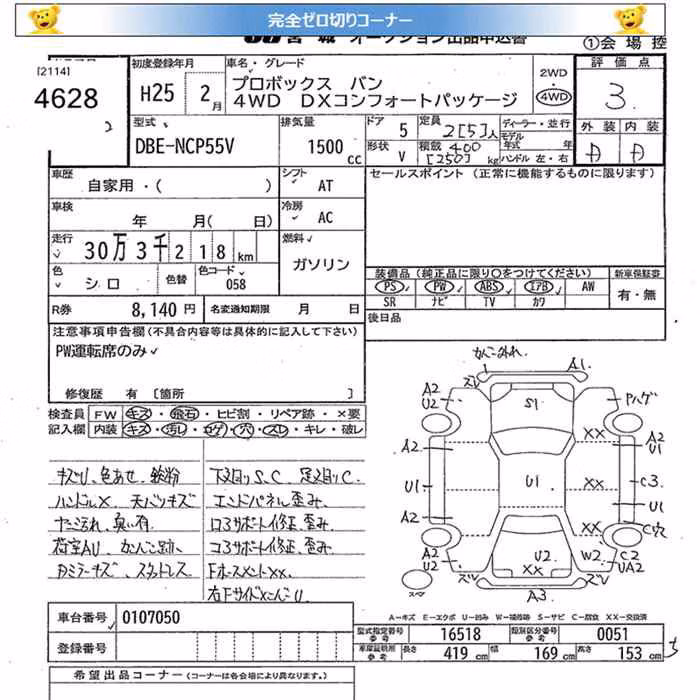 完全ゼロ切りコーナー
①会場控
[2114]
4628
2
初度登録年月
H25 2月
車名・グレード
プロボックス バン
4WD DXコンフォートパッケージ
2WD
4WD
評価点
3
外装 内装
A A
型式
DBE-NCP55V
排気量
1500cc
ドア 5
形状 V
定員 2[5]人
積載 400
[250]kg
ディーラー・並行
モデル年式 年
ハンドル 左・右
車歴
自家用・( )
シフト AT
車検
年 月(日)
冷房 AC
走行
30万3千218km
燃料 ガソリン
色 シロ
色替
色コード 058
R券 8,140円
名変通知期限 月 日
セールスポイント (正常に機能するものに限ります)
装備品(純正品に限り○をつけてください)
新車保証書
PS PW ABS エアB AW
SR ナビ TV カワ
有・無
後日品
注意事項申告欄(不具合内容等は具体的に記入して下さい)
PW運転席のみ
修復歴 有 [箇所 ]
検査員 FW キズ・飛石・ヒビ割・リペア跡・×要
記入欄 内装 キズ・汚レ・コゲ・穴・スレ・キレ・破レ
キズU、色あせ、鉄粉
ハンドルX 天バリキズ
臭い有
荷室AU
下廻りS.C 足廻りC
エンドパネル歪み
コアサポート修正、歪み
A1
A2
U2
S1
XX
A2
U1
A2
U1
A2
U1
XX
C3
U1
C穴
A2
U2
XX
U2
XX
W2
C2
UA2
A3
A=キズ E=エクボ U=凹み W=補修跡 S=サビ C=腐食 XX=交換済
車台番号 0107050
登録番号
型式指定番号
参考
16518
類別区分番号
参考
0051
車庫証明用
参考
長さ 419cm 幅 169cm 高さ 153cm
希望出品コーナー(コーナーは各会場により異なります。)